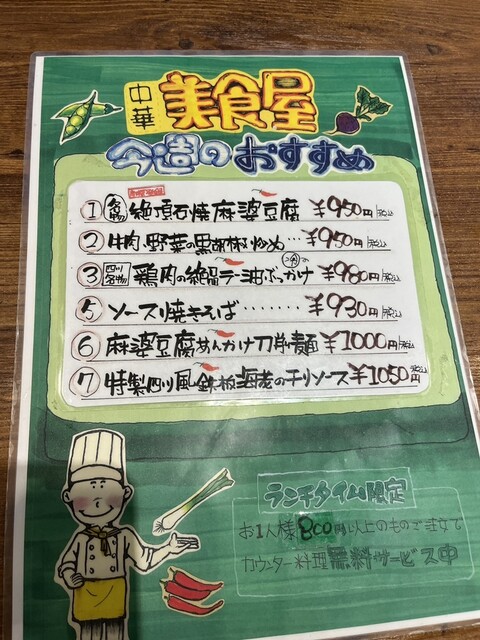 中華 美食屋
今週のおすすめ
① 名物 絶頂石焼麻婆豆腐 ¥950円(税込)
② 牛肉と野菜の黒胡椒炒め…¥950円(税込)
③ 四川名物 鶏肉の絶品ラー油ぶっかけ ¥980円(税込)
⑤ ソース焼きそば……¥930円(税込)
⑥ 麻婆豆腐あんかけ刀削麺 ¥1000円(税込)
⑦ 特製四川風鉄板海老のチリソース ¥1050円
ランチタイム限定
お1人様800円以上のものご注文で
カウンター料理無料サービス中